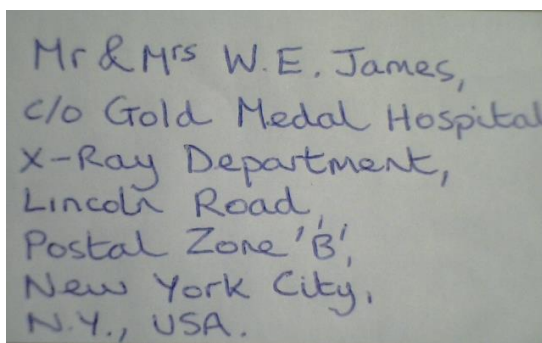 Mr & Mrs W.E. James,
c/o Gold Medal Hospital
X-Ray Department,
Lincoln Road,
Postal Zone 'B',
New York City,
N.Y., USA.